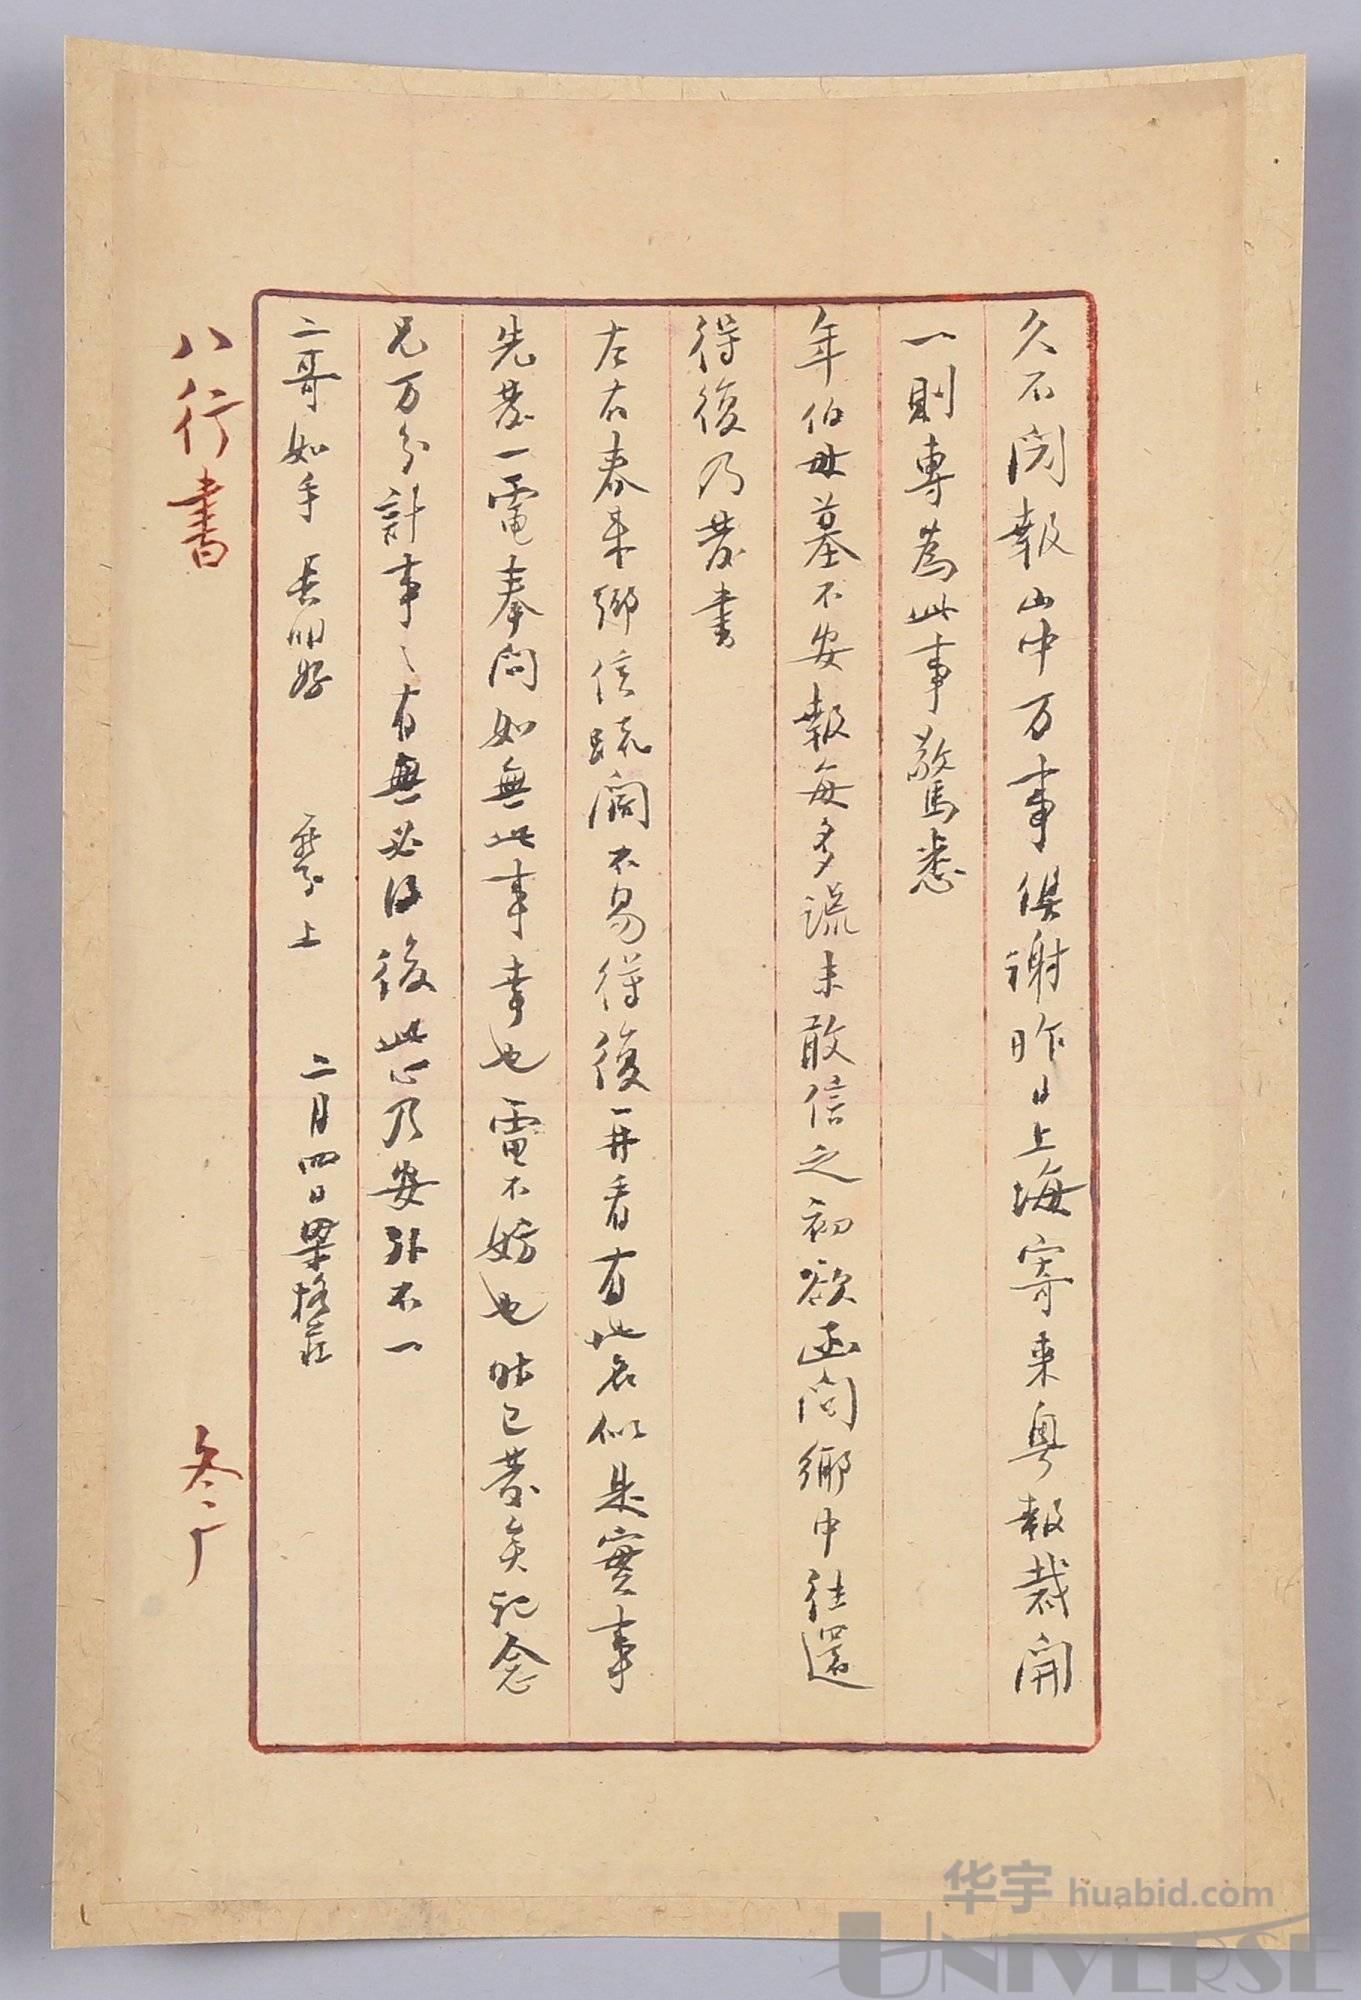 久不閱報山中万事俱謝昨日上海寄来粵報裁開
一則專為此事驚悉
年伯母墓不安報每多謊未敢信之初欲函问鄉中往還
得復乃發書
左右春来鄉信疏闊不易得復再看有地名似是實事
先發一電奉问如無此事幸也電不妨也昨已發矣記念
兄万分計事之有無必得後此心乃安外不一
二哥如手 上 二月四日梁格莊
八行書
冬广
华宇 huabid.com
UNIVERSE